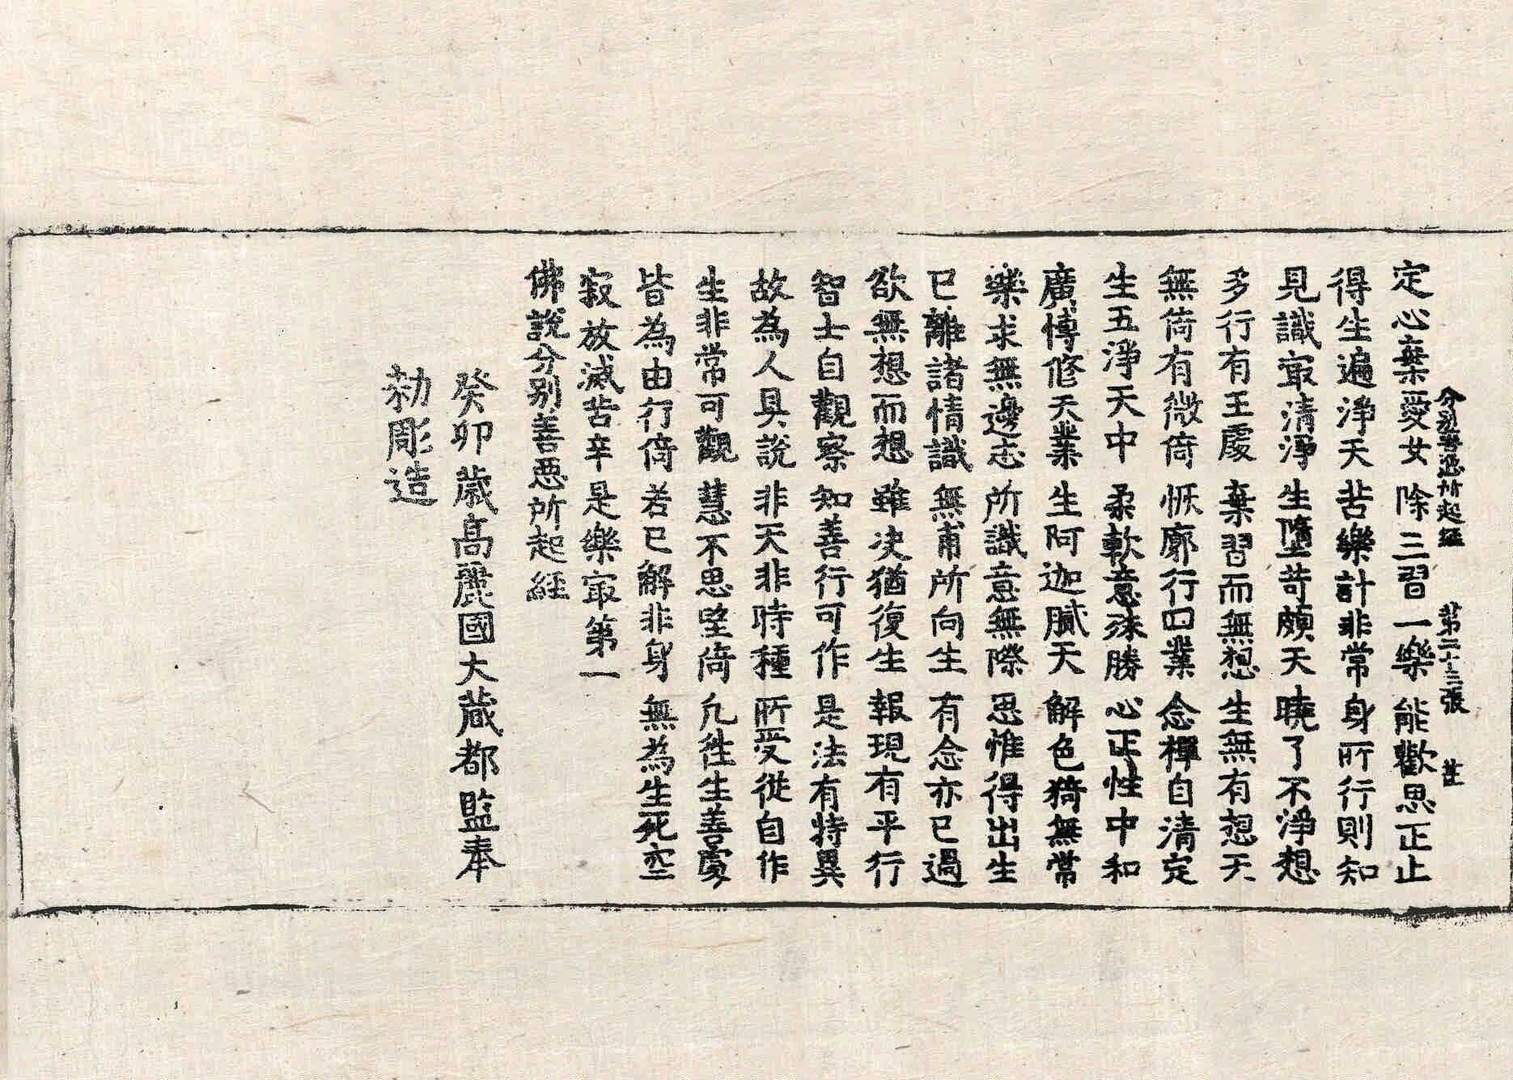 分別善惡所起經 第二十三張 萑
定心棄愛女 除三習一樂 能歡思正止
得生遍淨天 苦樂計非常 身所行則知
見識㝡清淨 生墮苛頗天 曉了不淨想
多行有王處 棄習而無想 生無有想天
無倚有微倚 恢廓行四業 念禪自清定
生五淨天中 柔軟意殊勝 心正性中和
廣博修天業 生阿迦膩天 解色猗無常
樂求無邊志 所識意無際 思惟得出生
已離諸情識 無甯所向生 有念亦已過
欲無想而想 雖决猶復生 報現有平行
智士自觀察 知善行可作 是法有特異
故為人具說 非天非時種 所受從自作
生非常可觀 慧不思望倚 凡徃生善處
皆為由行倚 若已解非身 無為生死空
寂放滅苦辛 是樂㝡第一
佛說分別善惡所起經
癸卯歲高麗國大藏都監奉
勑彫造